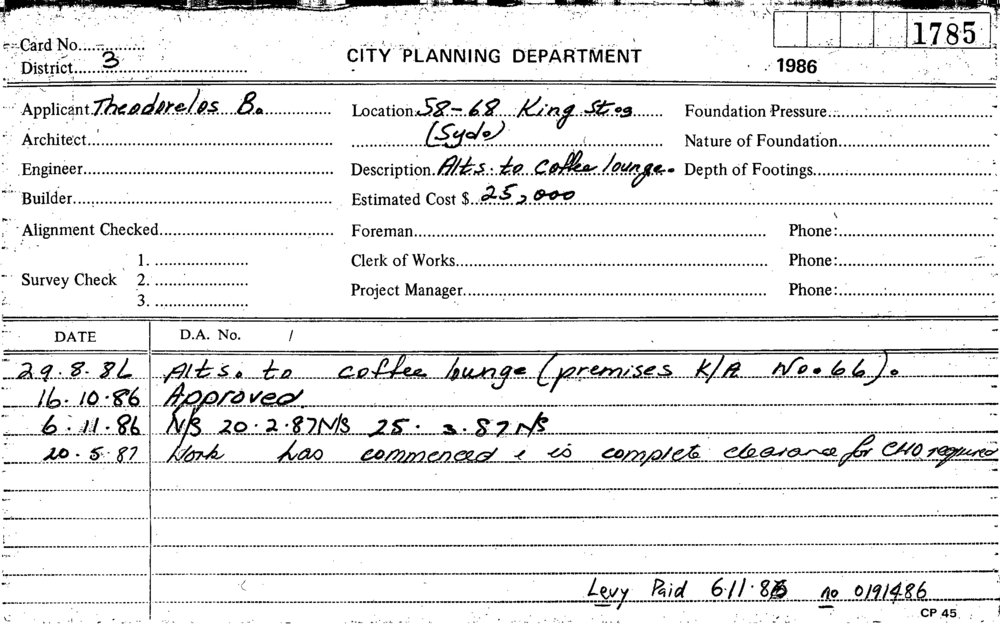 1785
Card No.
CITY PLANNING DEPARTMENT
District 3
1986
Applicant Theodorelos B. Location 58-68 King St. Foundation Pressure
Architect (Syd.) Nature of Foundation
Engineer Description Alts. to Coffee lounge. Depth of Footings
Builder Estimated Cost $ 25,000
Alignment Checked Foreman Phone:
1. Clerk of Works Phone:
Survey Check 2.
Project Manager Phone:
3.
DATE D.A. No. /
29.8.86 Alts. to coffee lounge (premises K/A No. 66).
16.10.86 Approved.
6.11.86 N/S 20.2.87 N/S 25.3.87 N/S
20.5.87 Work has commenced & is complete clearance for CHO required
Levy Paid 6.11.86 no 0191486
CP 45